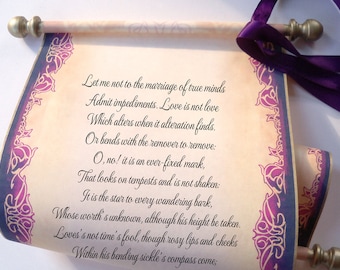 Let me not to the marriage of true minds
Admit impediments. Love is not love
Which alters when it alteration finds,
Or bends with the remover to remove:
O, no! it is an ever-fixed mark,
That looks on tempests and is not shaken;
It is the star to every wandering bark,
Whose worth's unknown, although his height be taken.
Loves's not time's fool, though rosy lips and cheeks
Within his bending sickle's compass come;